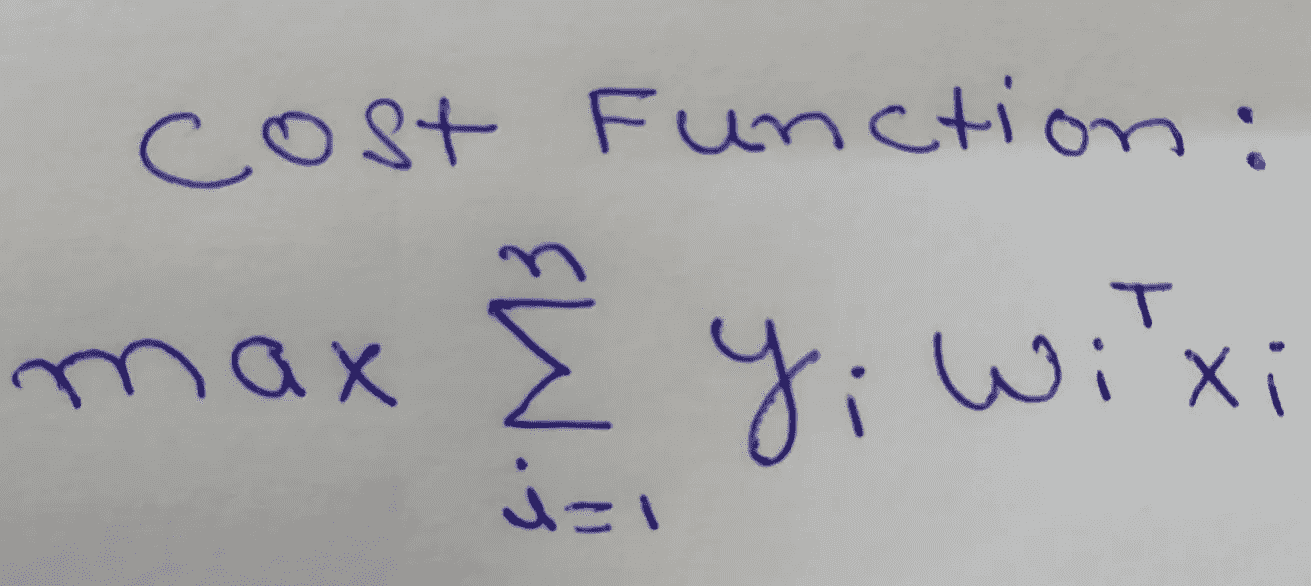 Cost Function:
max Σ_{i=1}^{n} y_i w_i^T x_i